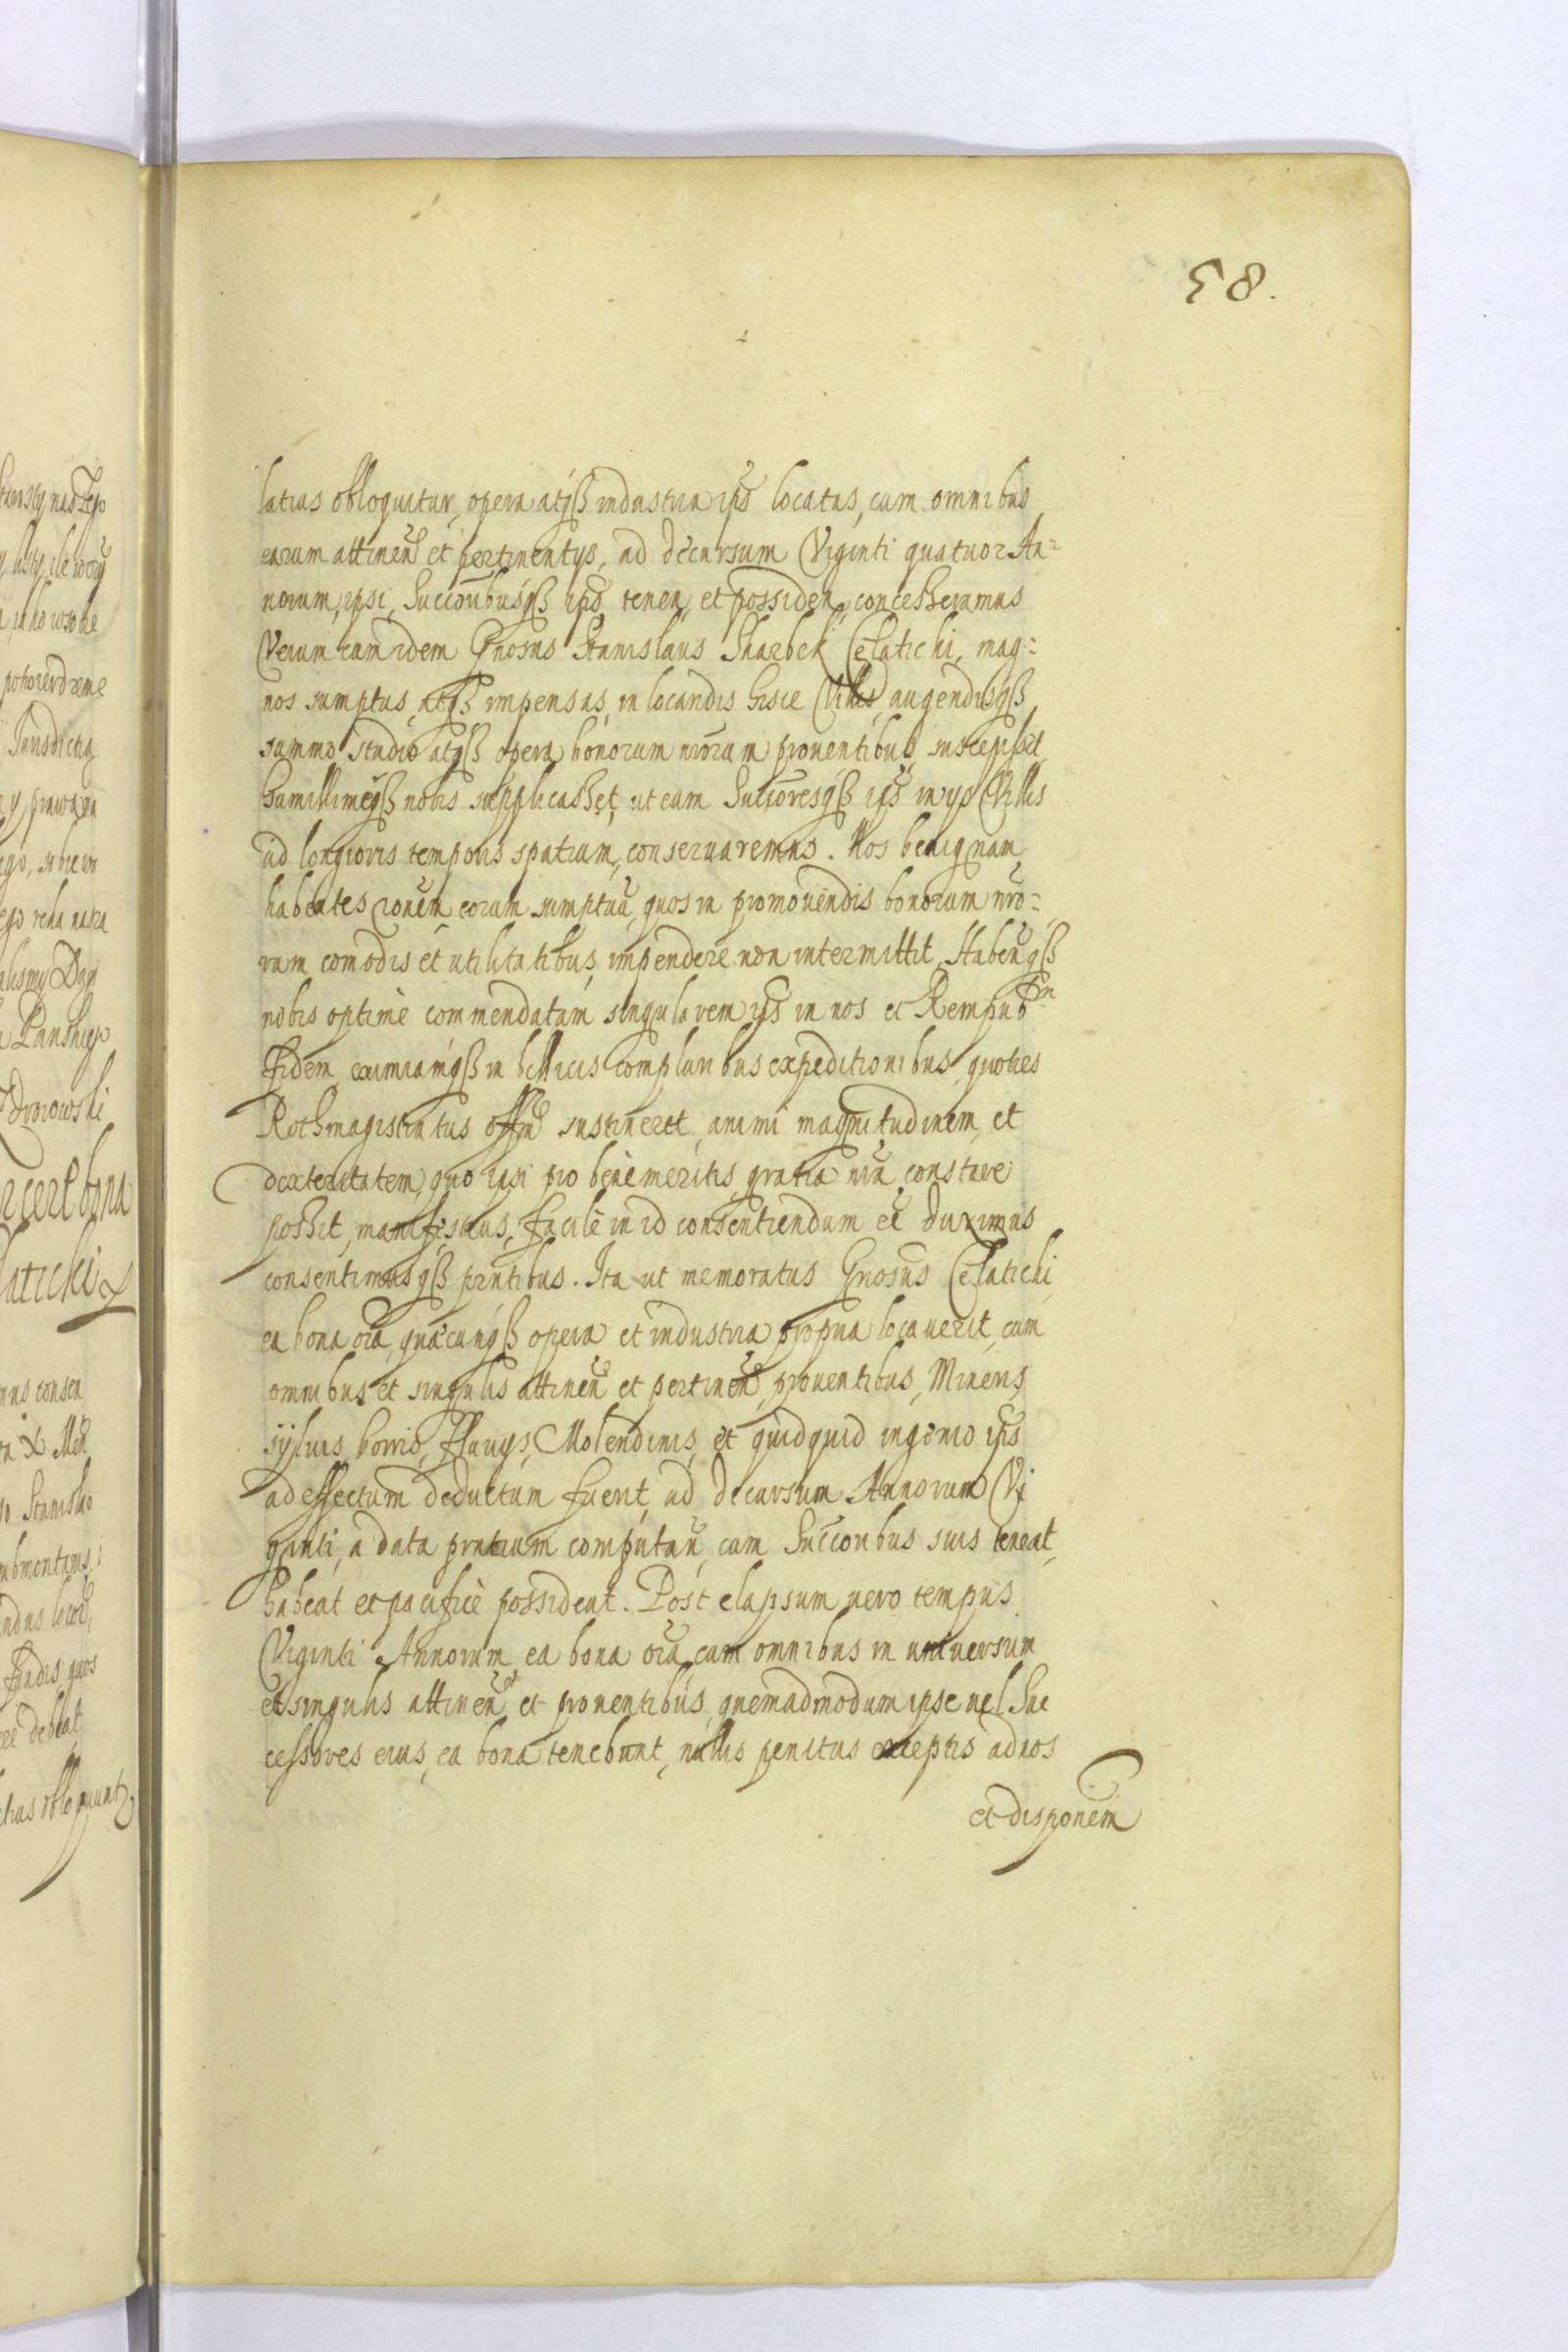 58.
latius obloquitur, opera atqß industria ips locatas, cum omnibus
earum attinen et pertinentys, ad decursum Viginti quatuor An=
norum, ipsi, Succoribusqß ips tenen, et possiden, concesseramus
Verum cum idem Gnosus Stanislaus Skarbek Celaticki, mag=
nos sumptus, atqß impensas, in locandis hisce Villis, augendisqß
summo studio atqß opera bonorum nrorum prouentibus, suscepisset
humillimeqß nobis supplicasset, ut eum Succoresqß ips in ys Villis
ad longioris temporis spatium, conseruaremus. Nos benignam
habentes ronem eorum sumptuu, quos in promouendis bonorum nro=
rum comodis et utilitatibus, impendere non intermittit, Habenqß
nobis optime commendatam singularem ys in nos et Rempub
fidem, eximiamqß in bellicis compluribus expeditionibus, quoties
Rothmagistratus offm sustineret, animi magnitudinem, et
dexteritatem, quo ipsi pro bene meritis, gratia nra, constare
possit, manifestius, facile in id consentiendum ee duximus
consentimusqß pntibus. Ita ut memoratus Gnosus Celaticki,
ea bona oia, quacunqß opera et industria propria locauerit, cum
omnibus et singulis attinen et pertinen, prouentibus, Mineris,
syluis, borris, Fluuys, Molendinis, et quidquid ingenio ips
ad effectum deductum fuerit, ad decursum Annorum Vi
ginti, a data pntium computan, cum Succoribus suis teneat,
habeat et pacifice possideat. Post elapsum uero tempus
Viginti Annorum, ea bona oia, cum omnibus in uniuersum
et singulis attinen, et prouentibus, quemadmodum ipse uel Suc
cessores eius, ea bona tenebunt, nullis penitus exceptis ad nos
et disponem